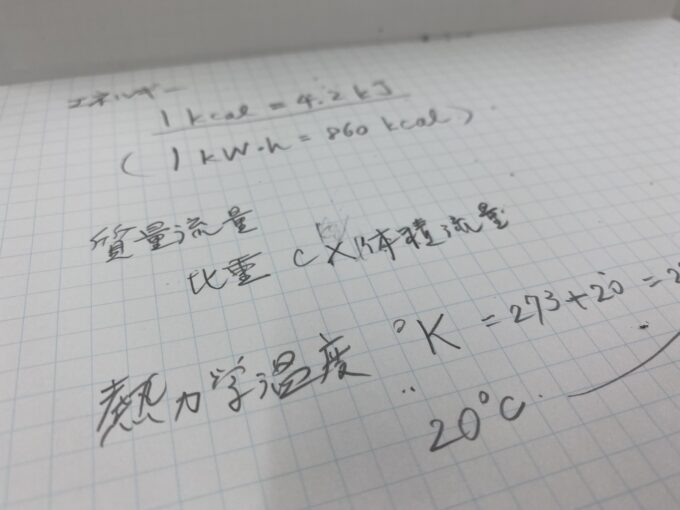 エネルギー
1 kcal = 4.2 kJ
( 1 kW·h = 860 kcal )
質量流量
比重 C × 体積流量
熱力学温度 °K = 273 + 20 = 2
20°C